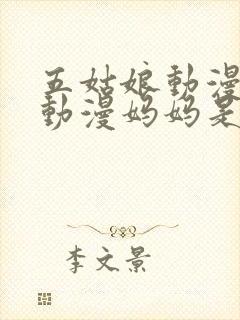 五姑娘動漫
動漫妈妈是
李文景